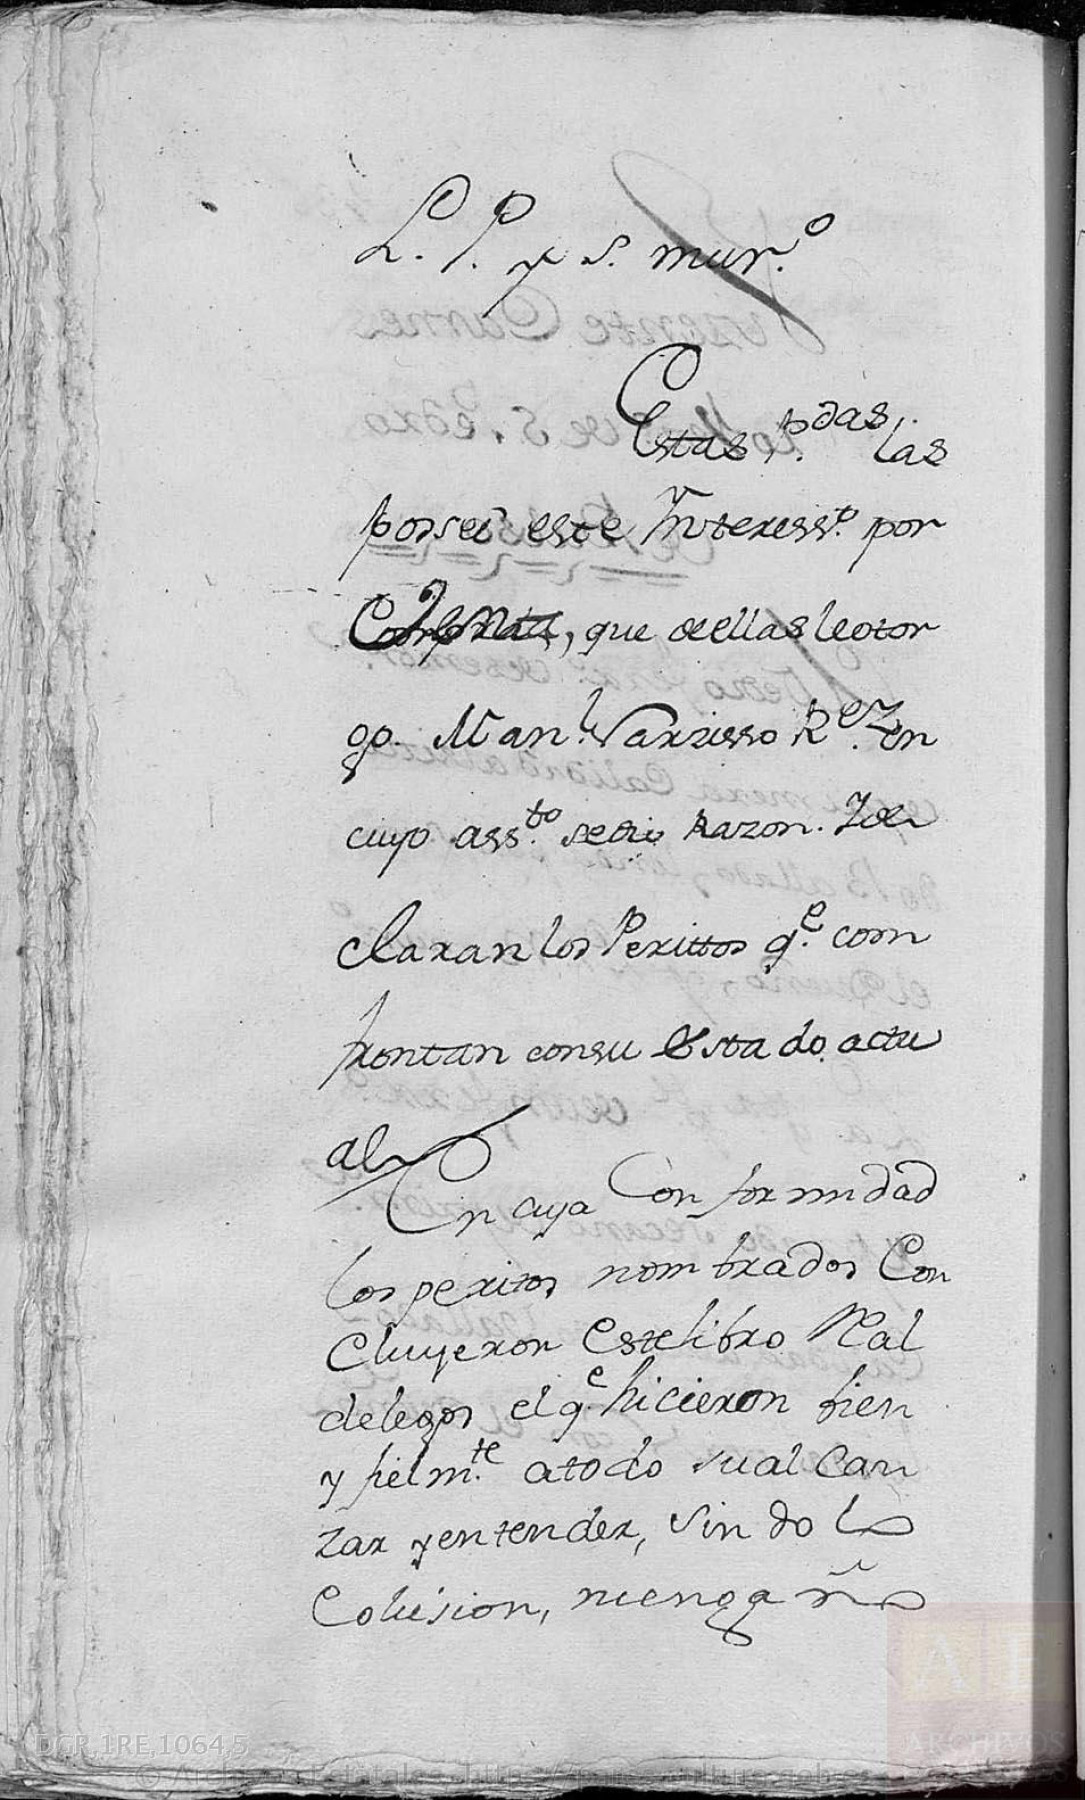 L. P. y S. mur.º
Estas p.das las
possei este Ynteress.º por
que deellas leotor
go. Man.l Narzisso R.ez en
cuyo ass.to sedio Razon. Yde
claran los Perittos q.e com
frontan consu Estado actu
al
En cuya Conformidad
los peritos nombrados Con
Cluyeron Este libro Real
delegos el q.e hicieron bien
y fielm.te atodo sualCan
zar y entender, Sin dolo
Colusion, niengaño
DGR,1RE,1064,5
AE
ARCHIVOS